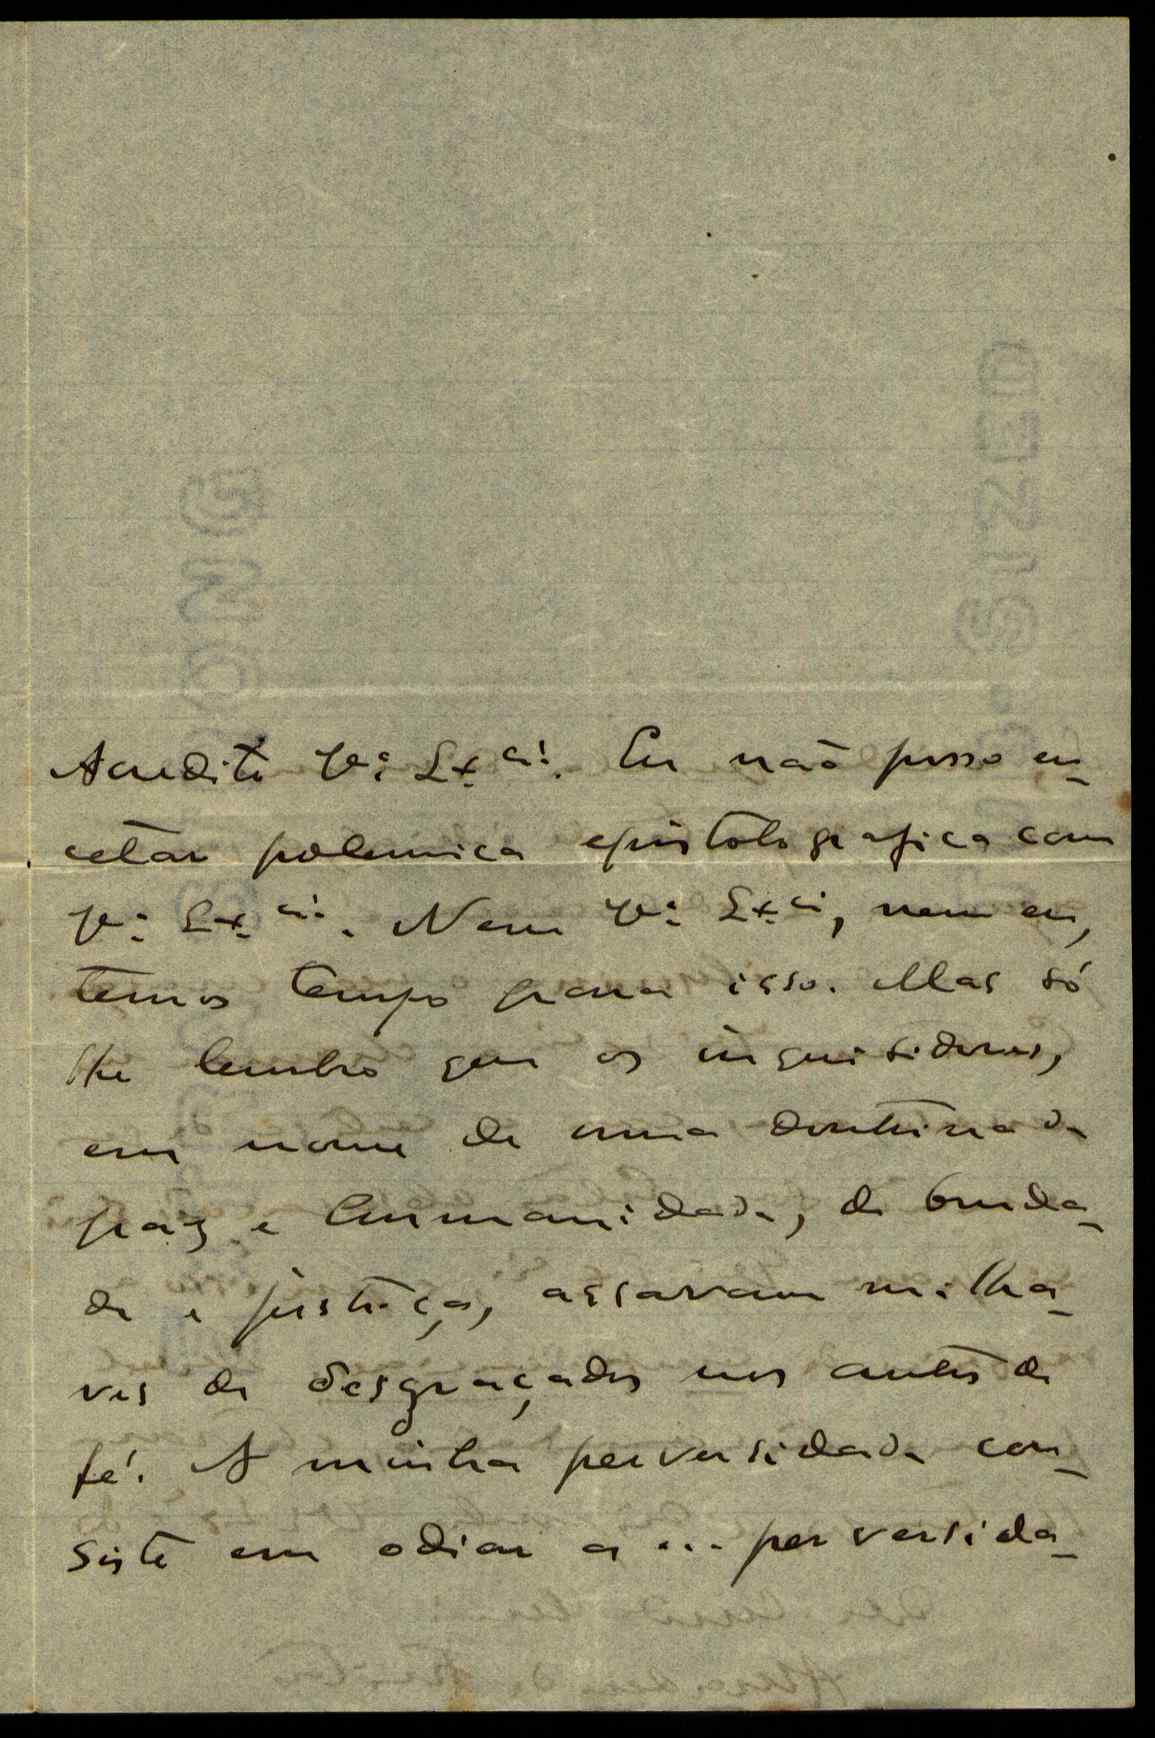 Acredite V.ª Ex.cia. Eu não posso en-
cetar polemica epistolografica com
V.ª Ex.cia. Nem V.ª Ex.cia, nem eu,
temos tempo para isso. Mas só
lhe lembro que os inquisidores,
em nome de uma doutrina de
paz e humanidade, de bonda-
de e justiça, assavam milha-
res de desgraçados nos autos de
fé. A minha perversidade con-
siste em odiar a ... perversida-